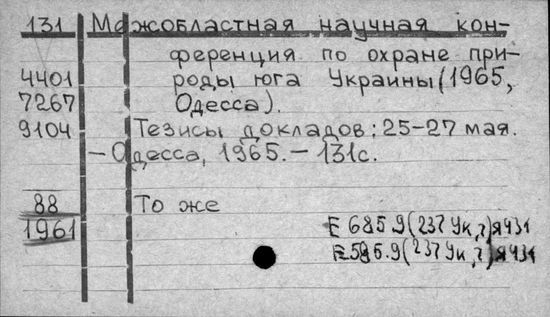 131 Межобластная научная кон-
ференция по охране при-
4401 роды юга Украины (1965,
7267 Одесса).
9104 Тезисы докладов: 25-27 мая.
— Одесса, 1965. — 131с.
88 То же
1961 Е 685.9(237Ук,7)я431
Е585.9(237Ук,7)я431